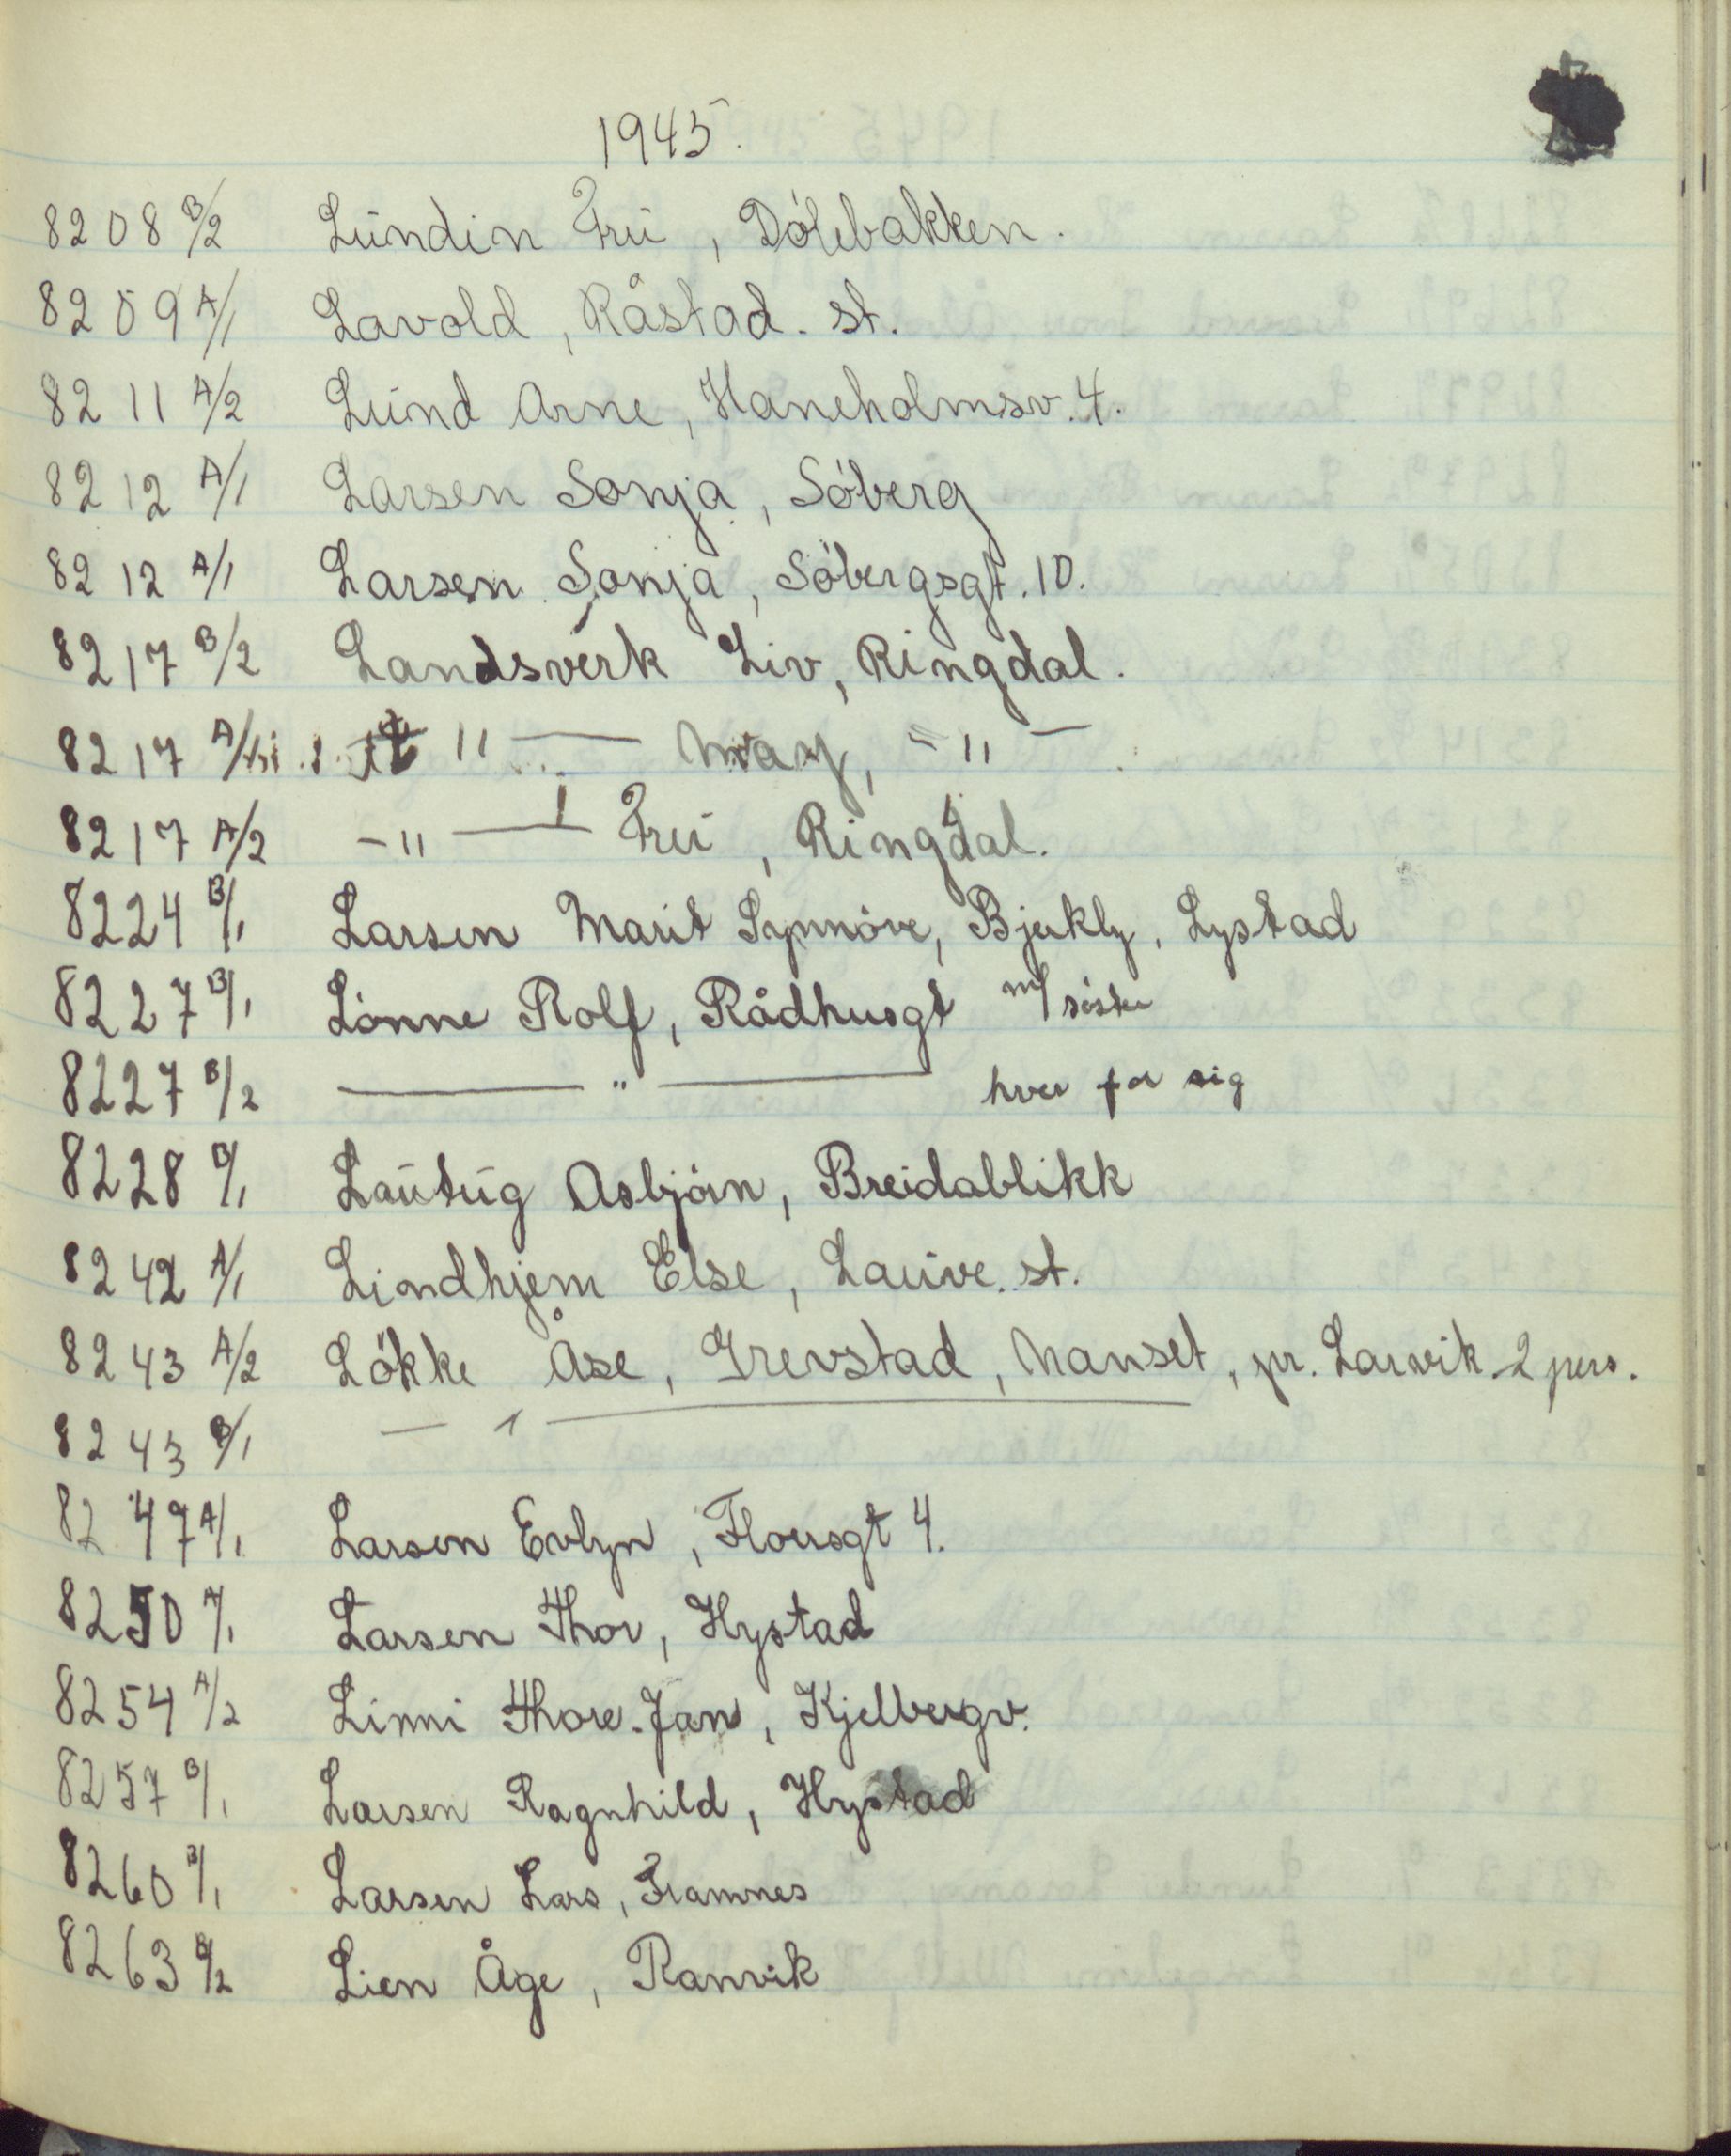 1945.
8208 B/2 Lundin Fru, Dölebakken.
8209 A/1 Lavold, Råstad. st.
8211 A/2 Lund Arne, Haneholmsv. 4.
8212 A/1 Larsen Sonja, Söberg
8212 A/1 Larsen Sonja, Söbergsgt. 10.
8217 B/2 Landsverk Liv, Ringdal.
8217 A/ " — May, - " -
8217 A/2 - " — Fru, Ringdal.
8224 B/1 Larsen Marit Synnöve, Bjerkly, Lystad
8227 B/1 Lönne Rolf, Rådhusgt m/ söster
8227 B/2 — " — hver for sig
8228 B/1 Lautug Asbjörn, Breidablikk
8242 A/1 Lindhjem Else, Lauve. st.
8243 A/2 Lökke Åse, Grevstad, Nanset, pr. Larvik - 2 pers.
8243 B/1 — " —
8247 A/1 Larsen Evlyn, Floersgt 4.
8250 A/1 Larsen Thor, Hystad
8254 A/2 Linni Thore-Jan, Kjellbergv.
8257 B/1 Larsen Ragnhild, Hystad
8260 B/1 Larsen Lars, Framnes
8263 B/2 Lien Åge, Ranvik